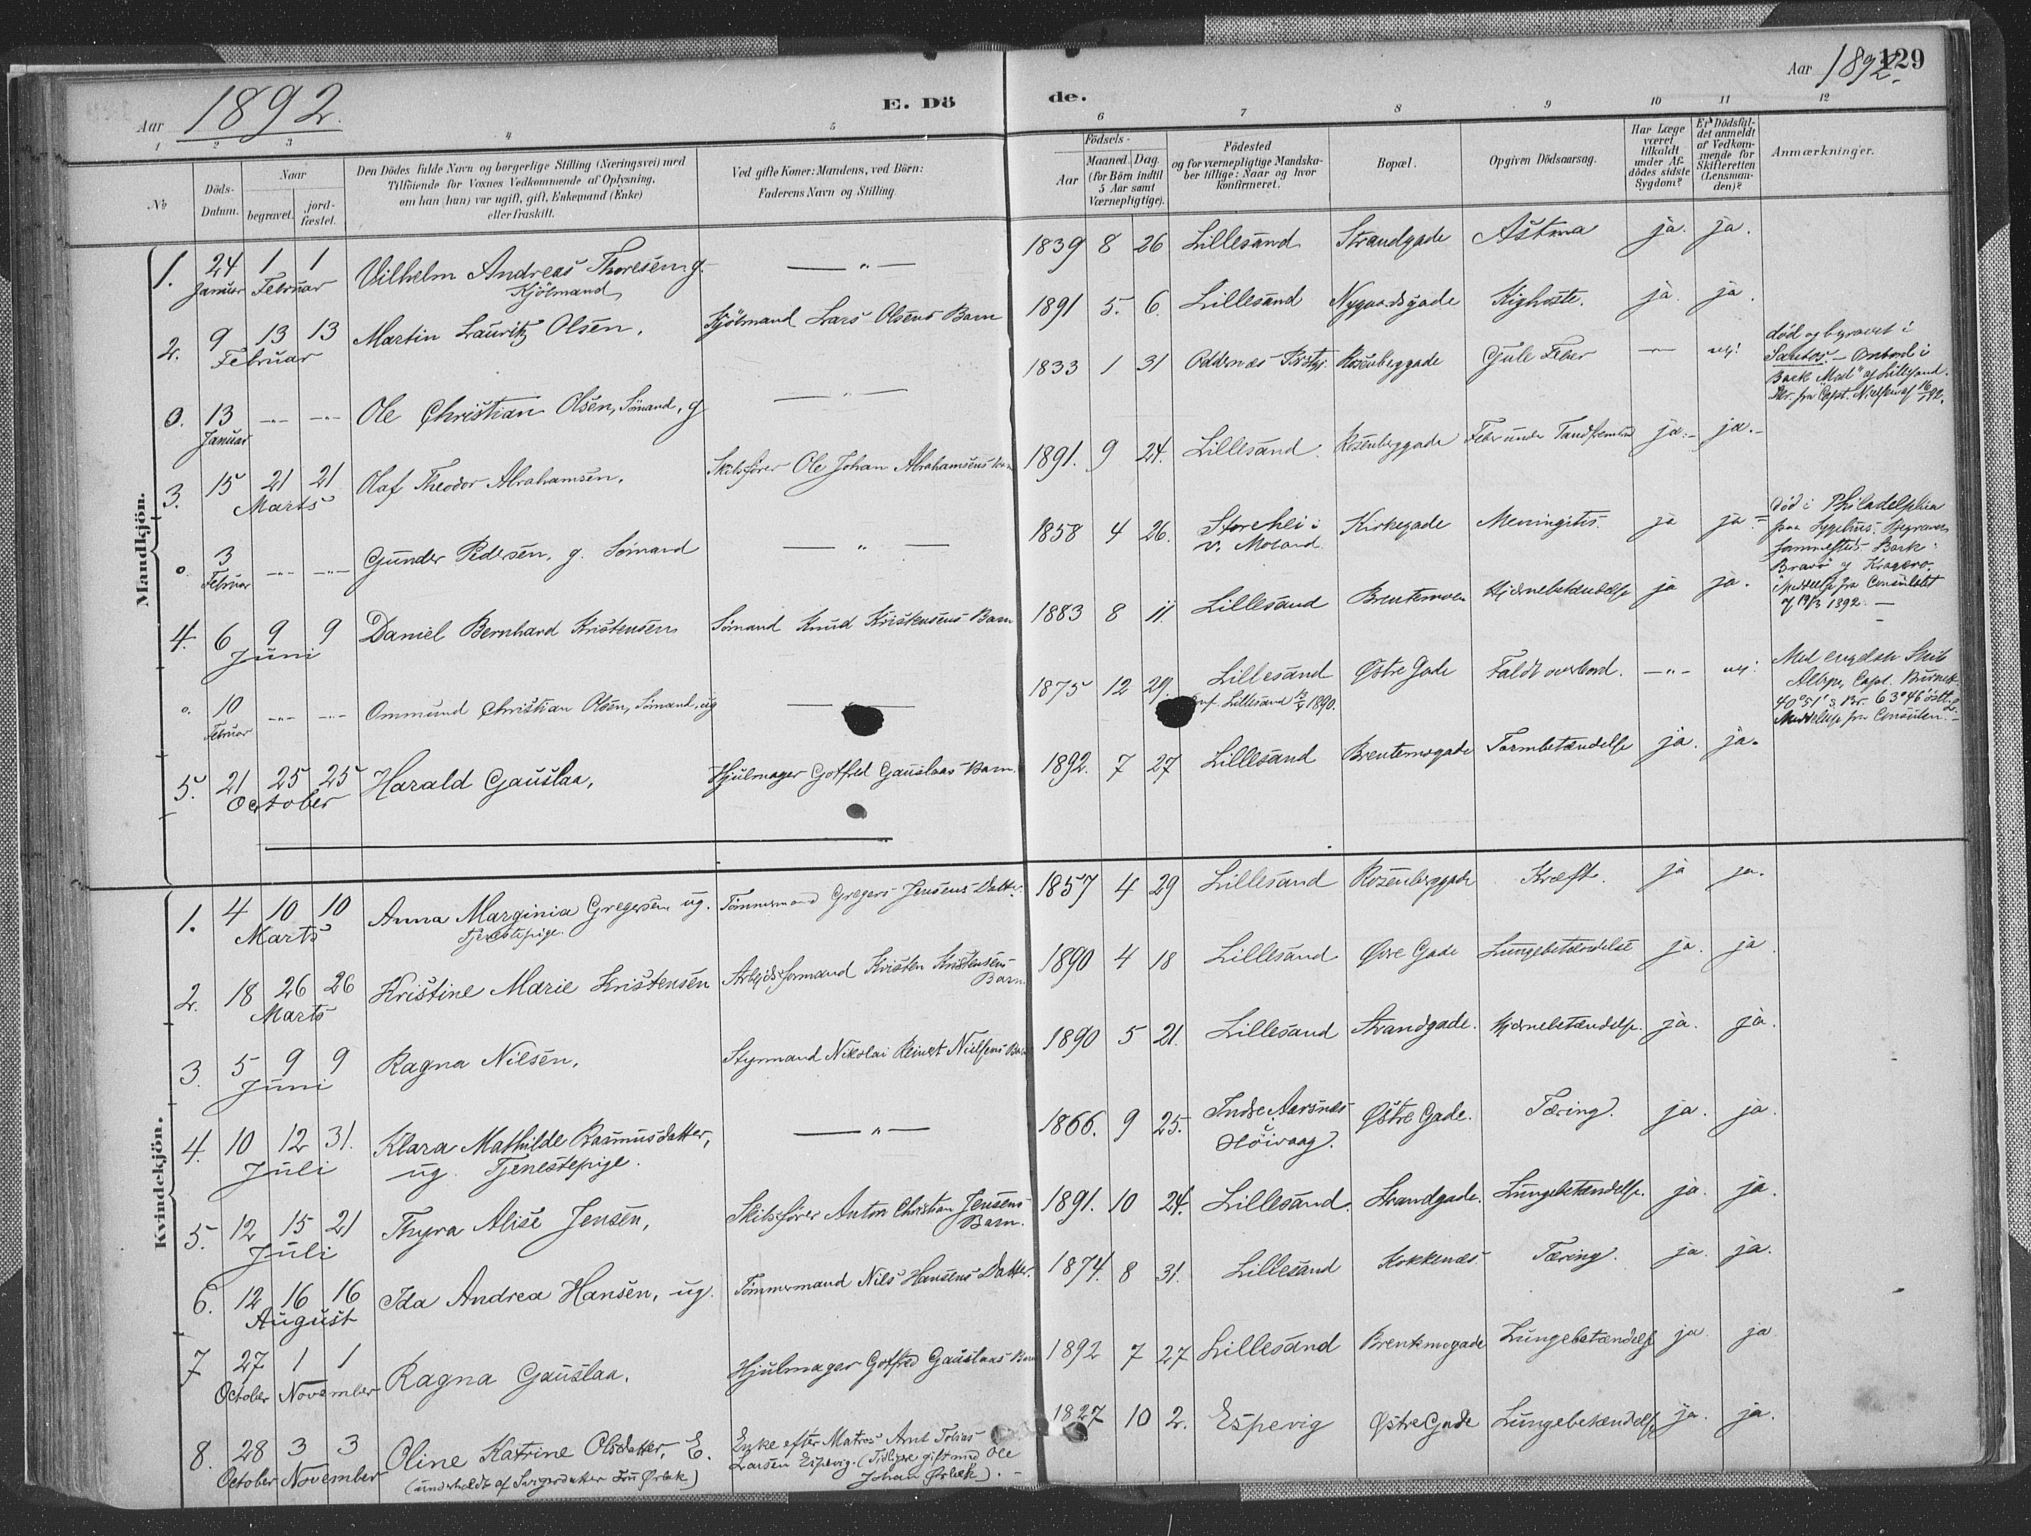 Aar 1892.
E. Dö
de.
Aar 1892.
129
1 2 3 4 5 6 7 8 9 10 11 12
No
Döds-
Datum.
Naar
begravet.
jord-
fæstet.
Den Dödes fulde Navn og borgerlige Stilling (Næringsvei) med
Tilföiende for Voxnes Vedkommende af Oplysning,
om han (hun) var ugift, gift, Enkemand (Enke)
eller fraskilt.
Ved gifte Koner: Mandens, ved Börn:
Faderens Navn og Stilling
Födsels-
Aar
Maaned. Dag.
(for Börn indtil
5 Aar samt
Værnepligtige).
Födested
og for værnepligtige Mandska-
ber tillige: Naar og hvor
konfirmeret.
Bopæl.
Opgiven Dödsaarsag.
Har Læge
været
tilkaldt
under Af-
dödes sidste
Sygdom?
Er Dödsfal-
det anmeldt
af Vedkom-
mende for
Skifteretten
(Lensman-
den)?
Anmærkninger.
Mandkjön.
1. 24 Januar 1 1 Februar Vilhelm Andreas Thoresen g.
Kjölmand
— " — 1839 8 26 Lillesand Strandgade Astma ja. ja.
2. 9 13 13 Februar Martin Lauritz Olsen, Kjölmand Lars Olsens Barn 1891 5. 6. Lillesand Nygaardsgade Kighoste. ja. ja.
0. 13 Januar -"- -"- Ole Christian Olsen, Sömand, g — " — 1833 1 31 Oddernes Rosenberggade Gule Feber — nej.
död og begravet i
Santos. — Ombord i
Bark af Lillesand.
fra Capt.
3. 15 21 21 Marts Olaf Theodor Abrahamsen, Skibsförer Ole Johan Abrahamsens Barn 1891. 9 24. Lillesand. Rosenberggade Feber under ja. — ja. —
0. 3 Februar -"- -"- Gunder Pedersen, g. Sömand — " — 1858 4 26. Storehei i
V. Moland. Kirkegade Meningitis. ja ja. —
Död i Philadelphia
paa Sygehus. Begravet
sammesteds. Bark
Bravo af Kragerö.
Meddelelse fra Consulatet
af 19/3 1892. —
4. 6 9 9 Juni Daniel Bernhard Kristensen Sömand Knud Kristensens Barn 1883 8 11. Lillesand Brentemoen Hjernebetændelse ja ja.
0. 10 Februar -"- -"- Ommund Christian Olsen, Sömand, ug 1875 12 29. Lillesand
Lillesand 1890. Østre Gade Faldt overbord. -"- nej.
Med engelsk Skib
Capt.
40°51' S. Br. 63°46' östl. L.
Meddelelse fra Consulen. —
5. 21 25 25 October Harald Gauslaa, Hjulmager Gotfred Gauslaas Barn. 1892. 7 27 Lillesand Brentemogade Tarmbetændelse ja. ja.
Kvindekjön.
1. 4 10 10 Marts Anna Marginia Gregersen ug.
Tjenestepige.
Tömmermand Gregers Jensens Datter. 1857 4 29 Lillesand Rosenberggade Kræft. ja ja.
2. 18 26 26 Marts Kristine Marie Kristensen Arbeidsformand Kristen Kristensens
Barn 1890 4 18 Lillesand Øvre Gade Lungebetændelse ja. ja
3. 5 9 9 Juni Ragna Nilsen, Styrmand Nikolai Reinert Nielsens Barn 1890 5 21. Lillesand Strandgade. Hjernebetændelse. ja. ja.
4. 10 12 31. Juli Klara Mathilde Rasmusdatter,
ug. Tjenestepige.
— " — 1866. 9 25. Indre Aarsnes
Höivaag. Østre Gade. Tæring. ja. ja.
5. 12 15 21 Juli Thyra Alise Jensen, Skibsförer Anton Christian Jensens
Barn. 1891. 10 24. Lillesand. Strandgade. Lungebetændelse. ja. ja.
6. 12 16 16 August Ida Andrea Hansen, ug. Tömmermand Nils Hansens Datter. 1874. 8 31. Lillesand Kokkenæs Tæring. ja. ja.
7 27 October 1 1 November Ragna Gauslaa, Hjulmager Gotfred Gauslaas Barn 1892 7 27 Lillesand Brentemogade Lungebetændelse ja. ja
8. 28 October 3 3 November Oline Katrine Olsdatter, E.
(underholdt af Svigerdatter Fru Ørbek)
Enke efter Matros Arnt Tobias
Larsen Espevig. (Tidligere gift med Ole
Johan Ørbek). —
1827 10 2. Espevig Østre Gade Lungebetændelse ja. ja.